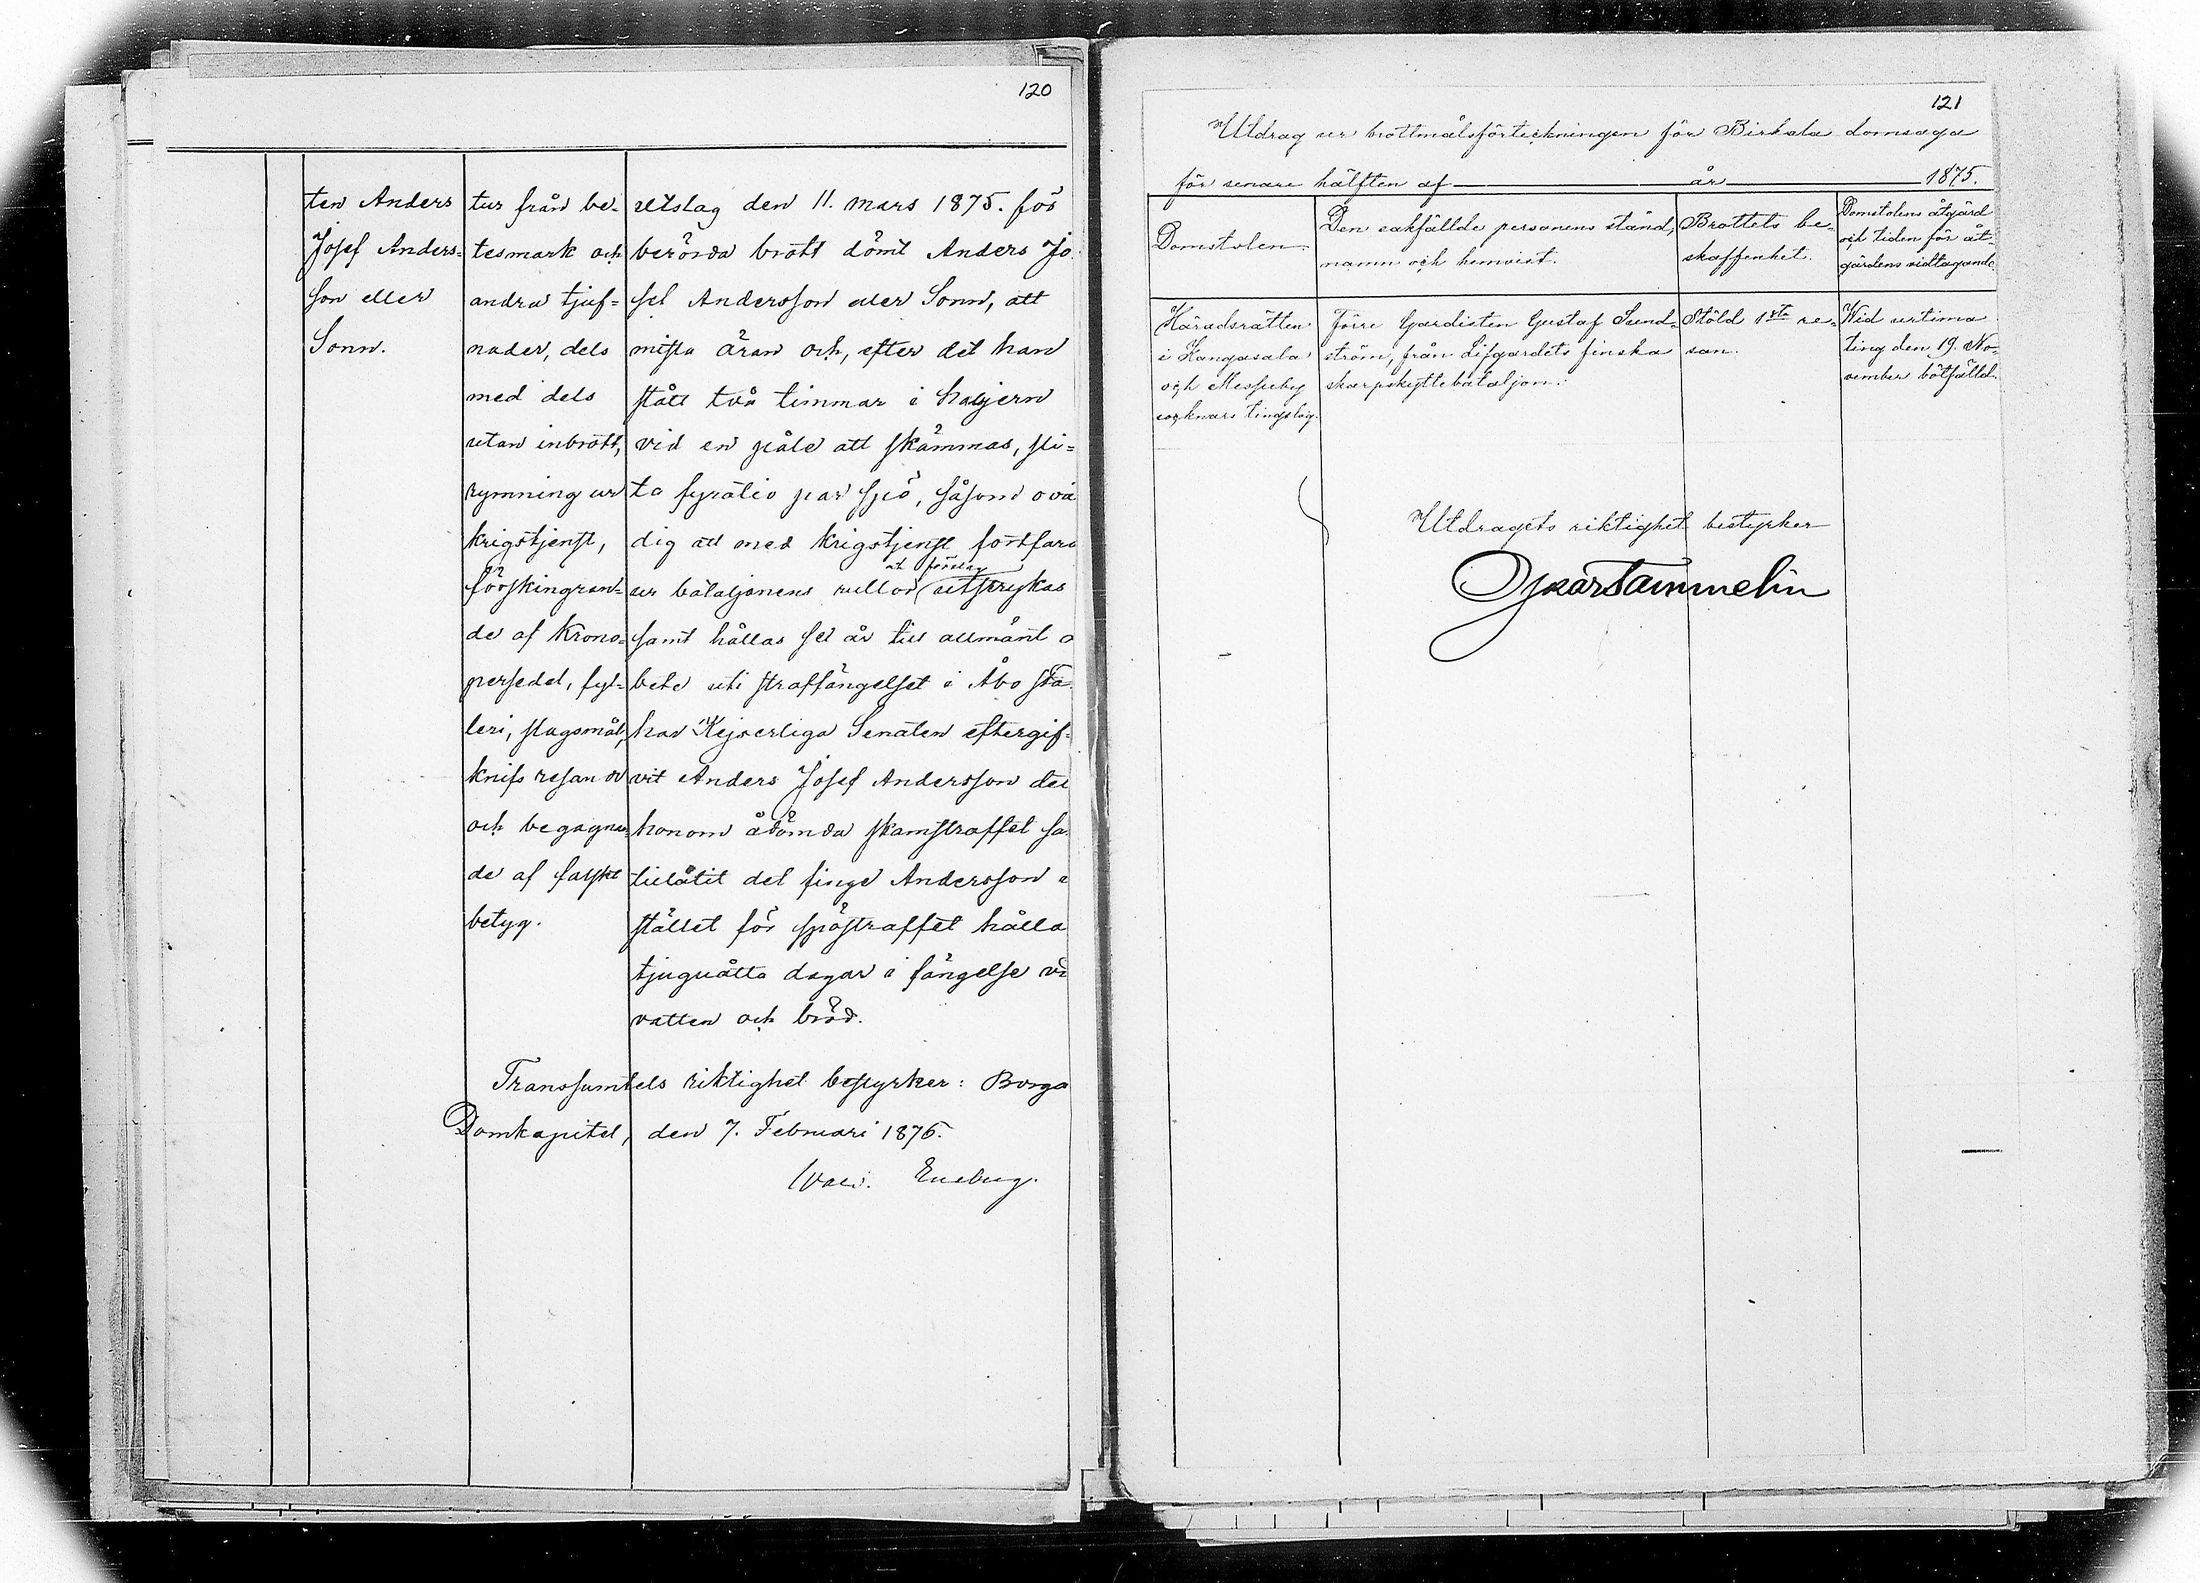 120
ten Anders
Josef Anders=
son eller
Sonn.
tur från be-
tesmark och
andra tjuf=
nader, dels
med dels
utan inbrott,
rymning ur
krigstjenst,
förskingran=
de af Krono=
persedel, fyl=
leri, slagsmål,
knifs resan
och begagnan
de af falskt
betyg.
utslag den 11. mars 1875. för
berörda brott dömt Anders Jo
sef Andersson eller Sonn, att
mista äran och, efter det han
stått två timmar i halsjern
vid en påle att skämmas, sli=
ta fyratio par spö, såsom ovä
dig att med krigstjenst fortfara
ur bataljonens rullor utstrykas
samt hållas sex år till allmänt a
bete uti straffängelset i Åbo sta
har Kejserliga Senaten eftergif=
vit Anders Josef Andersson det
honom ådömda skamstraffet sa
tillåtit det finge Andersson i
stället för spöstraffet hålla
tjuguåtta dagar i fängelse vi
vatten och bröd.
Transsumtets riktighet bestyrker: Borgå
Domkapitel, den 7. Februari 1876.
Wald. Eneberg.
121
Utdrag ur brottmålsförteckningen för Birkala domsaga
för senare hälften af år 1875.
Domstolen.
Den sakfällde personens stånd,
namn och hemvist.
Brottets be-
skaffenhet.
Domstolens åtgärd
och tiden för åt-
gärdens vidtagande.
Häradsrätten
i Kangasala
och Messuby
socknars tingslag.
Förre Gardisten Gustaf Sund-
ström, från Lifgardets finska
skarpskyttebataljon.
Stöld 1sta re-
san.
Wid urtima
ting den 19. No-
vember bötfälld.
Utdragets riktighet bestyrker
Oskar Tammelin